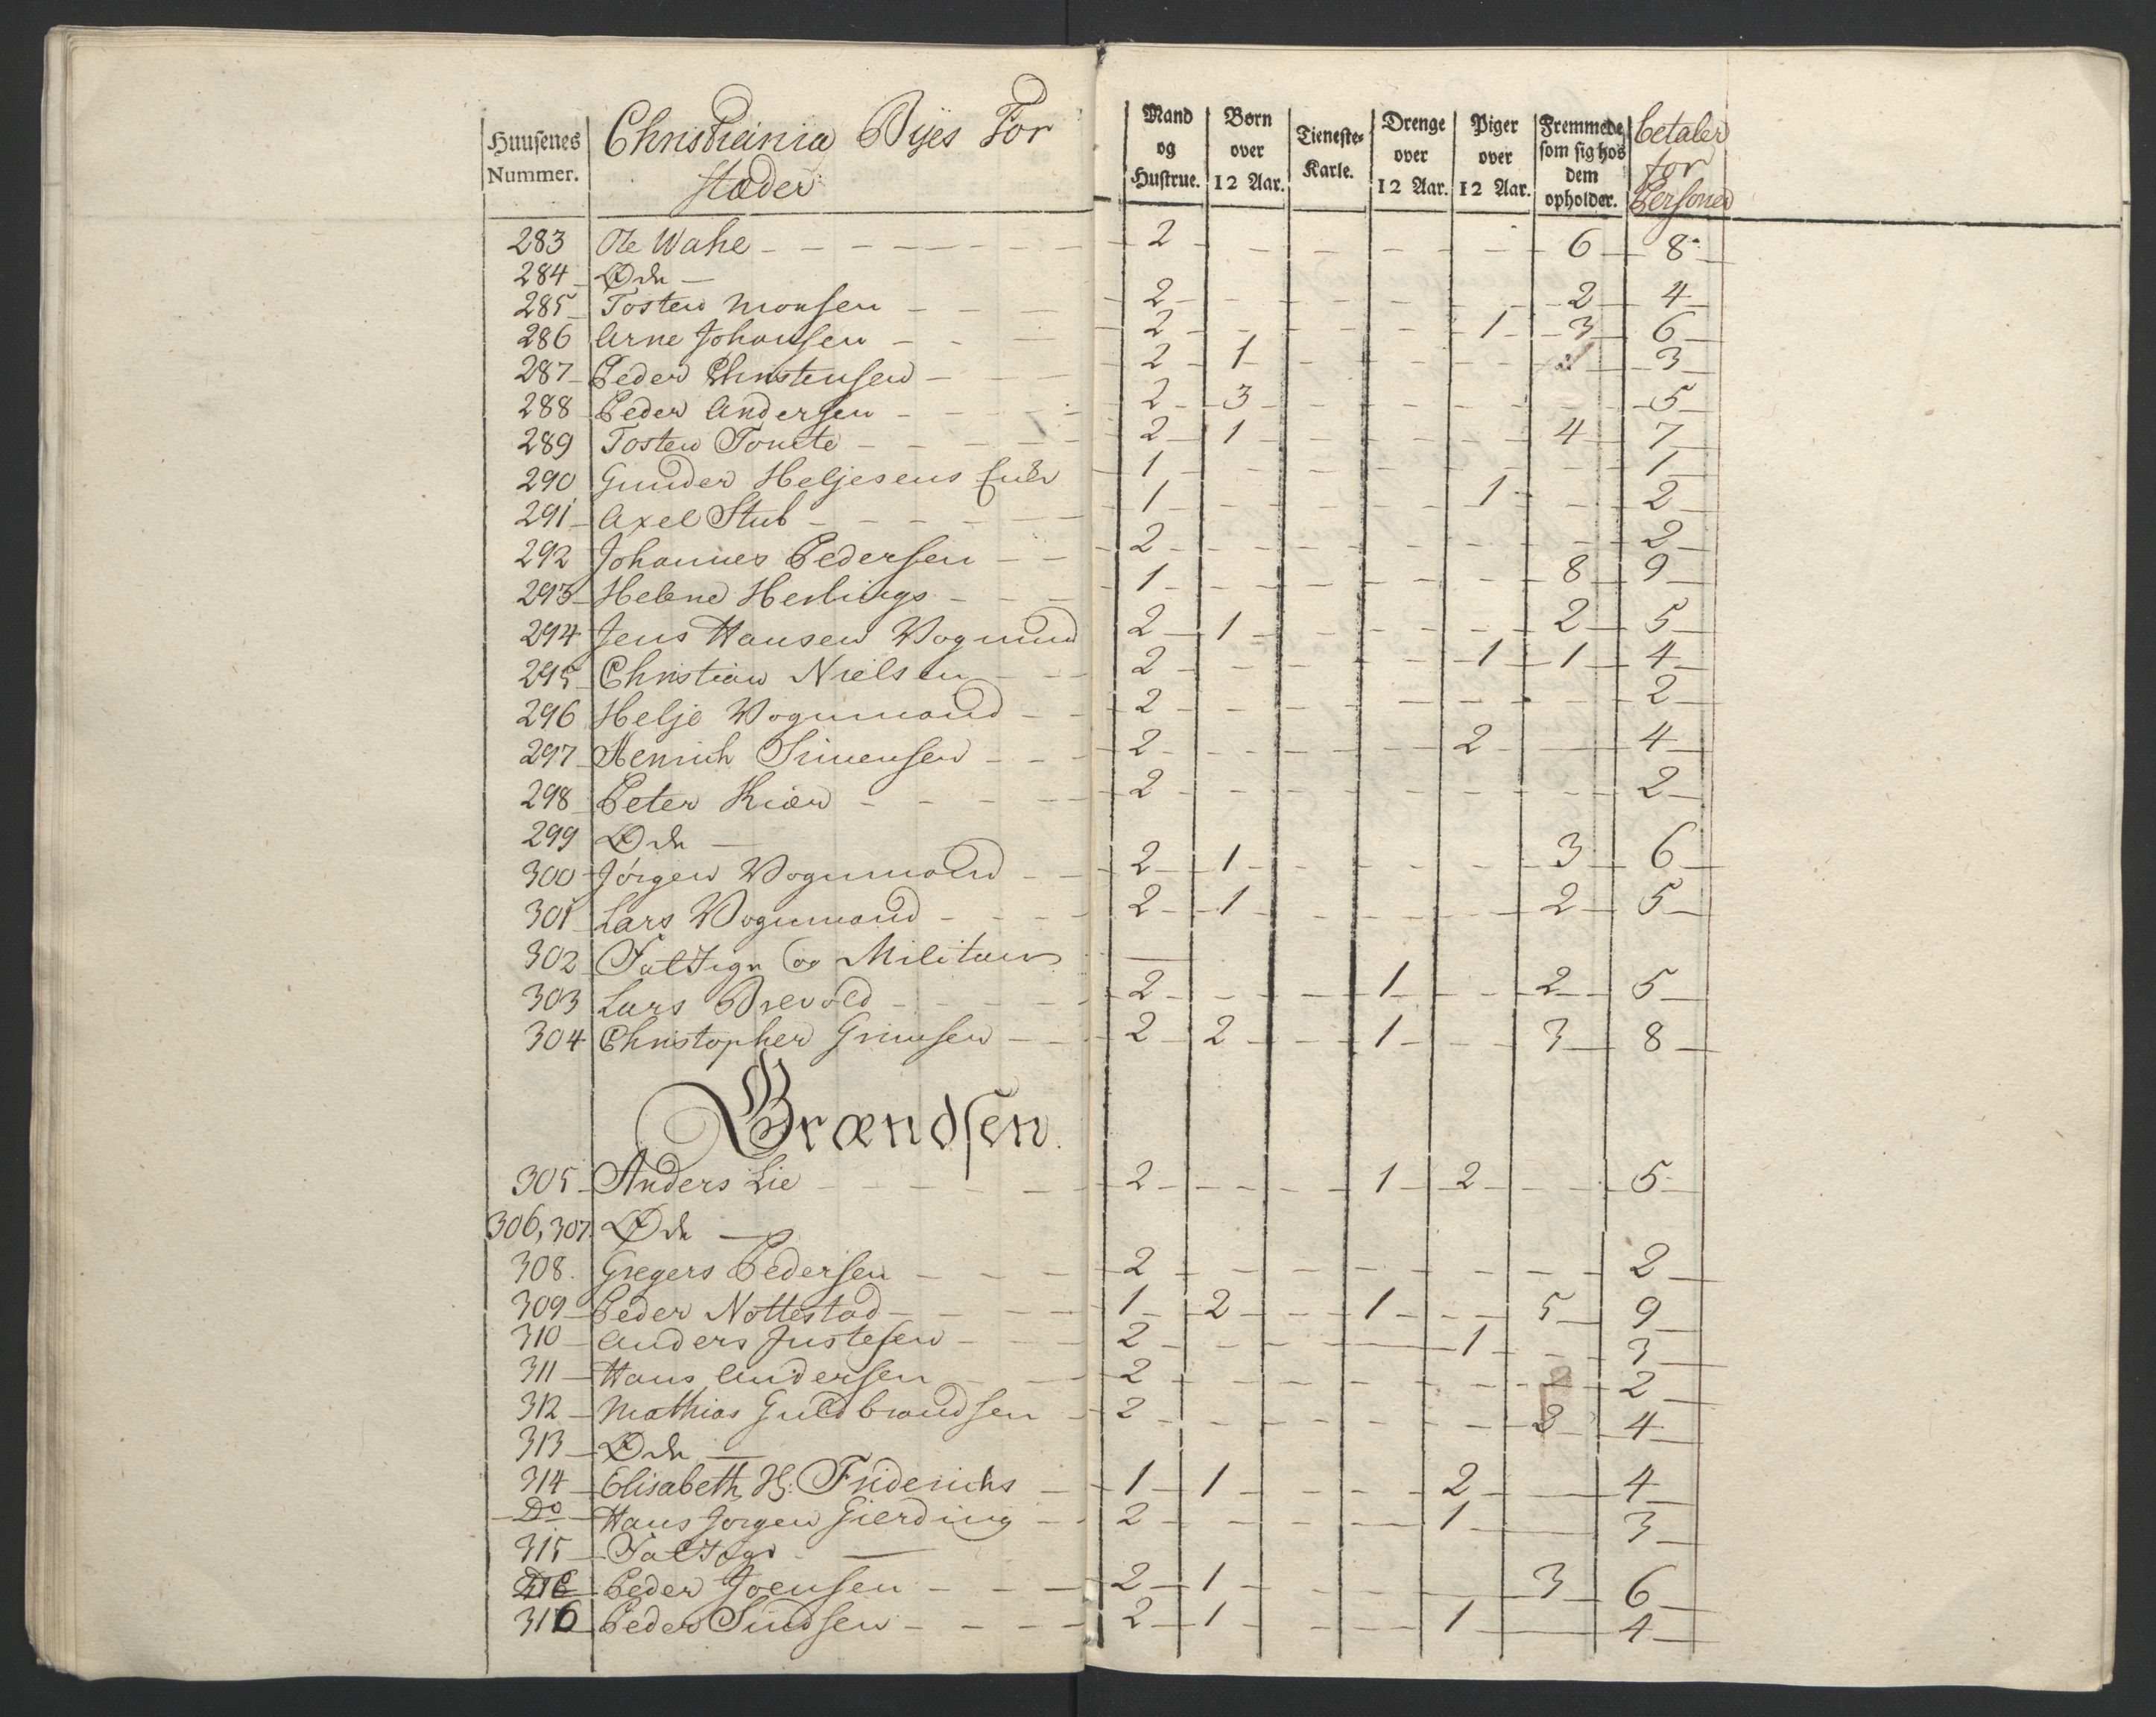 Huusenes Nummer. | Christiania Byes For stæder | Mand og Hustrue. | Børn over 12 Aar. | Tieneste-Karle. | Drenge over 12 Aar. | Piger over 12 Aar. | Fremmede som sig hos dem opholder. | betaler for Persone
283 Ole Wahe - 2 - - - - 6 8
284 Øde
285 Tosten Monsen - 2 - - - - 2 4
286 Arne Johansen - 2 - - - 1 3 6
287 Peder Christensen - 2 1 - - - - 3
288 Peder Andersen - 2 3 - - - - 5
289 Tosten Tomte - 2 1 - - - 4 7
290 Gunder Heljesens Enke 1 - - - - - 1
291 Axel Stub - 1 - - - 1 - 2
292 Johannes Pedersen - 2 - - - - - 2
293 Helene Herlings - 1 - - - - 8 9
294 Jens Hansen Vogmand 2 1 - - - 2 5
295 Christian Nielsen - 2 - - - 1 1 4
296 Helje Vognmand - 2 - - - - - 2
297 Henrich Simensen - 2 - - - 2 - 4
298 Peter Kiær - 2 - - - - - 2
299 Øde
300 Jörgen Vognmand - 2 1 - - - 3 6
301 Lars Vognmand - 2 1 - - - 2 5
302 Fattige og Militair
303 Lars Brevold - 2 - - 1 - 2 5
304 Christopher Grimsen - 2 2 - 1 - 3 8
Grændsen.
305 Anders Lie - 2 - - 1 2 - 5
306, 307. Øde
308. Gregers Pedersen - 2 - - - - - 2
309 Peder Nottestad - 1 2 - 1 - 5 9
310 Anders Justesen - 2 - - - 1 - 3
311 Hans Andersen - 2 - - - - - 2
312 Mathias Guldbrandsen - 2 - - - - 2 4
313 Øde
314 Elisabeth Friderichs - 1 1 - - 2 - 4
Do Hans Jorgen Gierding - 2 - - - 1 - 3
315 Fattige
Peder Joensen - 2 1 - - - 3 6
316 Peder Sindsen - 2 1 - - 1 - 4